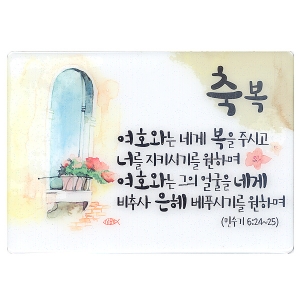 축복
여호와는 네게 복을 주시고
너를 지키시기를 원하며
여호와는 그의 얼굴을 네게
비추사 은혜 베푸시기를 원하며
(민수기 6:24~25)